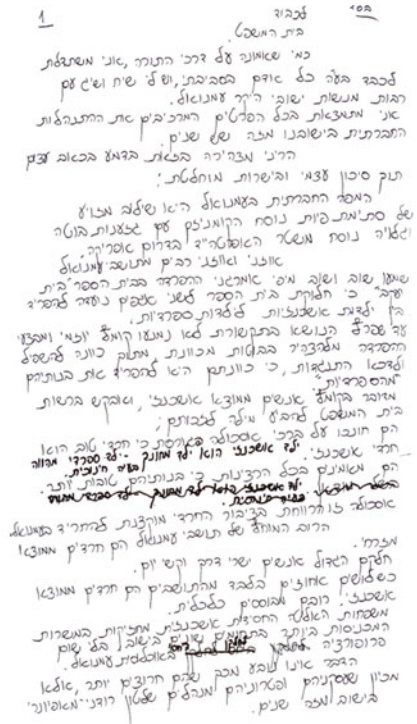 בס"ד
1
לכבוד
בית המשפט.
כמי שאמונה על דרכי התורה, אני משתדלת
לכבד בע"ה כל אדם בסביבתי, ויש לי שיח ושיג עם
רבות מנשות ישובי היקר עמנואל.
אני מתמצאת בכל הפרטים המרכיבים את ההתנהלות
החברתית בישובנו מזה שנים.
הריני מצהירה בזאת, בדמע בכאב עצום
תוך סיכון עצמי ובישרות מוחלטת:
המפה החברתית בעמנואל היא שילוב מזויע
של סתימת פיות נוסח הקומוניזם עם גזענות בוטה
וגלויה נוסח משטר האפרטהייד בדרום אפריקה.
אוזני ואוזני רבים מתושבי עמנואל
שמעו שוב ושוב מפי אמרגני ההפרדה בבית הספר "בית
יעקב" כי חלוקת בית הספר לשני אגפים נועדה להפריד
בין ילדות אשכנזיות לילדות ספרדיות.
עד שפרץ הנושא בתקשורת לא נמנעו קומץ יוזמי ומבצעי
ההפרדה מלהצהיר בבוטות מכוונת, מתוך כוונה להשפיל
ולדכא התנגדות, כי כוונתם היא להפריד את בנותיהם
"מהספרדיות".
מדובר בקומץ אנשים ממוצא אשכנזי, ואבקש ברשות
בית המשפט להביע מילה לזכותם:
הם חונכו על ברכי אסכולה הגורסת כי חרדי טוב הוא
חרדי אשכנזי. ילד אשכנזי הוא ילד מחונך - ילד ספרדי מהווה
בעיה חינוכית.
הם מאמינים בכל הרצינות כי בנותיהם טובות יותר.
אסכולה זו הרווחת בציבור החרדי מוקצנת להחריד בעמנואל.
הרוב המוחלט של תושבי עמנואל הם חרדים ממוצא
מזרחי.
חלקם הגדול אנשים ישרי דרך וקשי יום.
כשלושים אחוזים בלבד מהתושבים הם חרדים ממוצא
אשכנזי. רובם מבוססים כלכלית.
משפחות האליטה החסידית אשכנזית מחזיקות במשרות
המכניסות ביותר בתחומים שונים בישוב בלי שום
פרופורציה באוכלוסית עמנואל.
הדבר אינו נובע מכך שהם חרוצים יותר, אלא
מכיון שעסקניהם ופטרוניהם מנהלים שלטון רודני-מאפיונרי
בישוב מזה שנים.